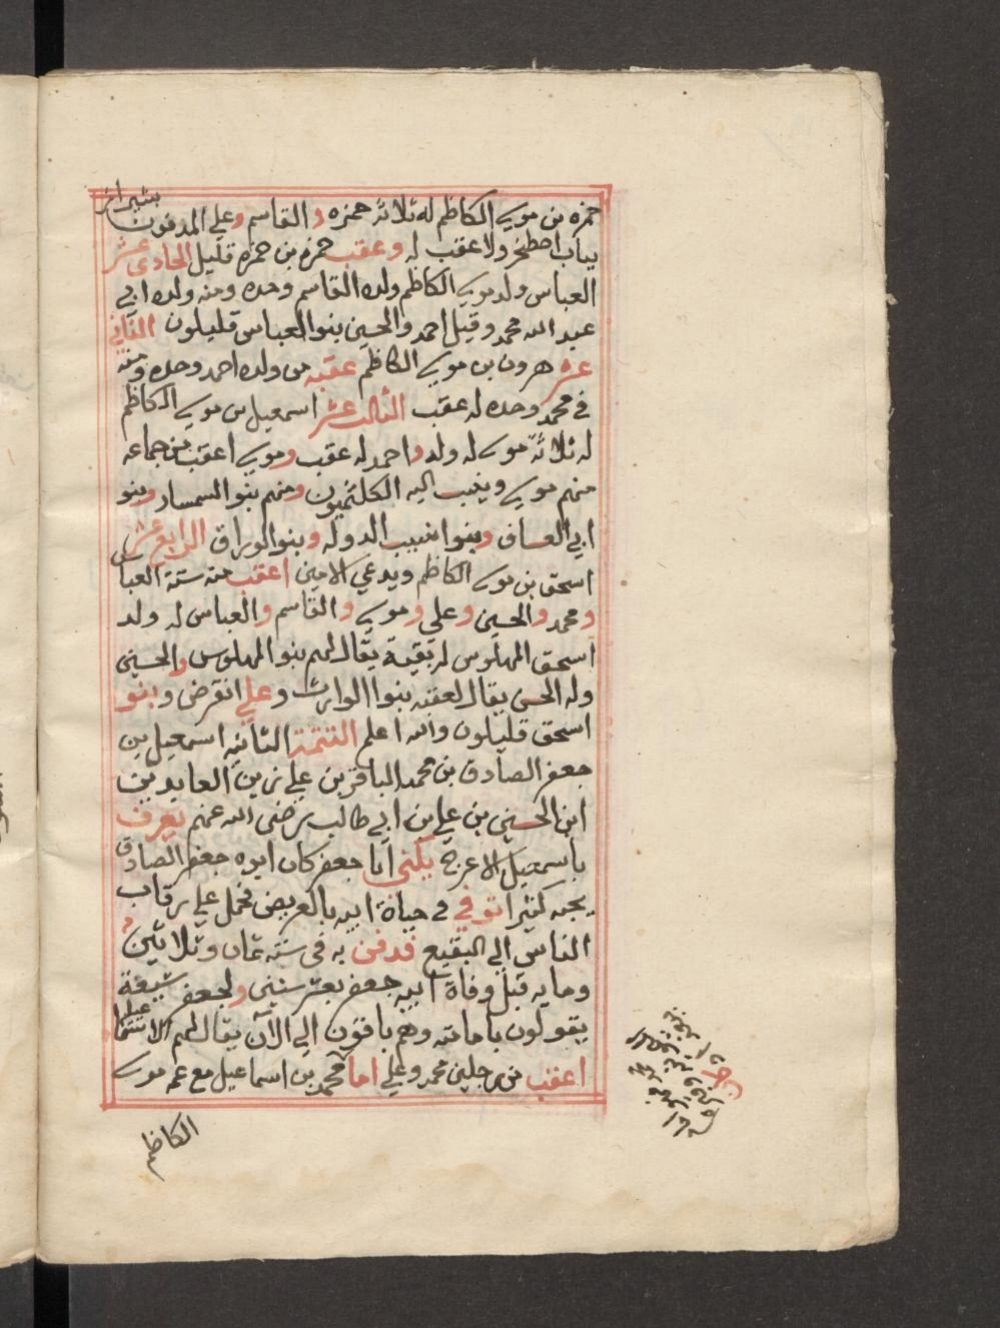 حمزه بن موسى الكاظم له ثلاثة حمزه والقاسم وعلي المدفون بشيراز
بباب اصطخر ولا عقب له وعقب حمزه بن حمزه قليل الحادى عشر
العباس ولد موسى الكاظم ولده القاسم وحده ومنه ولده ابي
عبد الله محمد وقيل احمد والحسين بنوا العباس قليلون الثاني
عشر هرون بن موسى الكاظم عقبه من ولده احمد وحده ومنه
في محمد وحده له عقب الثالث عشر اسمعيل بن موسى الكاظم
له ثلاثة موسى له ولد واحمد له عقب وموسى اعقب من جماعه
منهم موسى وينسب اليه الكلثميون ومنهم بنوا السمسار وبنو
ابي العساف وبنوا نسيب الدوله وبنوا الوراق الرابع عشر
اسحق بن موسى الكاظم ويدعي الامين اعقب منه ستة العباس
ومحمد والحسين وعلي وموسى والقاسم والعباس له ولد
اسحق المهلوس له بقية يقال لهم بنو المهلوس والحسين
ولد الحسن يقال لعقبه بنوا الوارث وعلي انقرض وبنو
اسحق قليلون والله اعلم التتمة الثانيه اسمعيل بن
جعفر الصادق بن محمد الباقر بن علي زين العابدين
ابن الحسين بن علي بن ابي طالب رضى الله عنهم يعرف
باسمعيل الاعرج يكنى ابا جعفر كان ابوه جعفر الصادق
يحبه كثيرا توفي في حياة ابيه بالعريض فحمل علي رقاب
الناس الي البقيع فدفن به فى سنة ثمان وثلاثين
ومايه قبل وفاة ابيه جعفر بعشر سنين ولجعفر شيعة
يقولون بامامته وهم باقون الي الآن يقال لهم الاسمعيليه
اعقب من رجلين محمد وعلي اما محمد بن اسماعيل مع عمه موسى
الكاظم